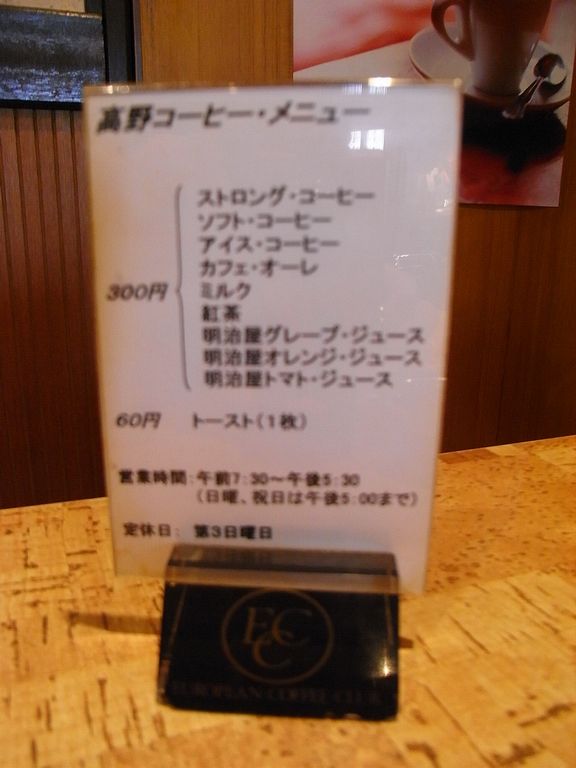 高野コーヒー・メニュー
ストロング・コーヒー
ソフト・コーヒー
アイス・コーヒー
カフェ・オーレ
300円 ミルク
紅茶
明治屋グレープ・ジュース
明治屋オレンジ・ジュース
明治屋トマト・ジュース
60円 トースト(1枚)
営業時間:午前7:30～午後5:30
(日曜、祝日は午後5:00まで)
定休日: 第3日曜日
ECC
EUROPEAN COFFEE CLUB